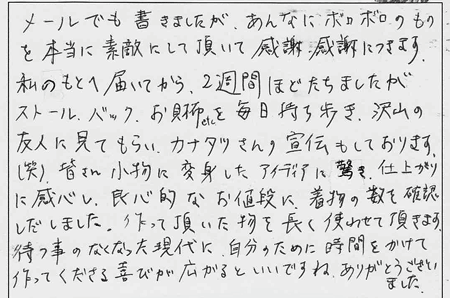 メールでも書きましたが、あんなにボロボロのもの
を本当に素敵にして頂いて感謝感謝につきます。
私のもとへ届いてから、2週間ほどたちましたが
ストール、バック、お財布etcを毎日持ち歩き、沢山の
友人に見てもらい、カナタツさんの宣伝もしております。
(笑) 皆さん小物に変身したアイディアに驚き、仕上がり
に感心し、良心的なお値段に、着物の数を確認
しだしました。作って頂いた物を長く使わせて頂きます。
待つ事のなくなった現代に、自分のために時間をかけて
作ってくださる喜びが広がるといいですね。ありがとうござい
ました。